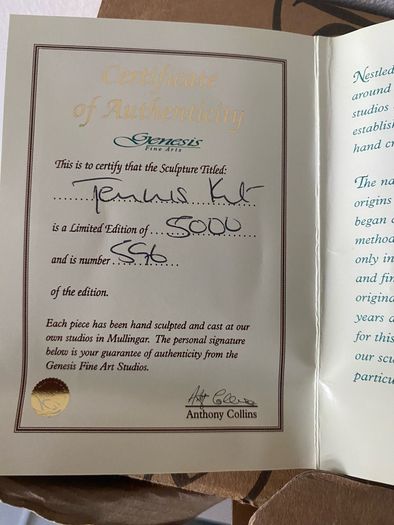 Certificate
of Authenticity
Genesis
Fine Arts
This is to certify that the Sculpture Titled:
Tennis Kit
is a Limited Edition of 5000
and is number 556
of the edition.
Each piece has been hand sculpted and cast at our
own studios in Mullingar. The personal signature
below is your guarantee of authenticity from the
Genesis Fine Art Studios.
Anthony Collins
Nestled
around
studios
establis
hand cr
The na
origins
began c
method
only in
and fin
origina
years a
for this
our scu
particu